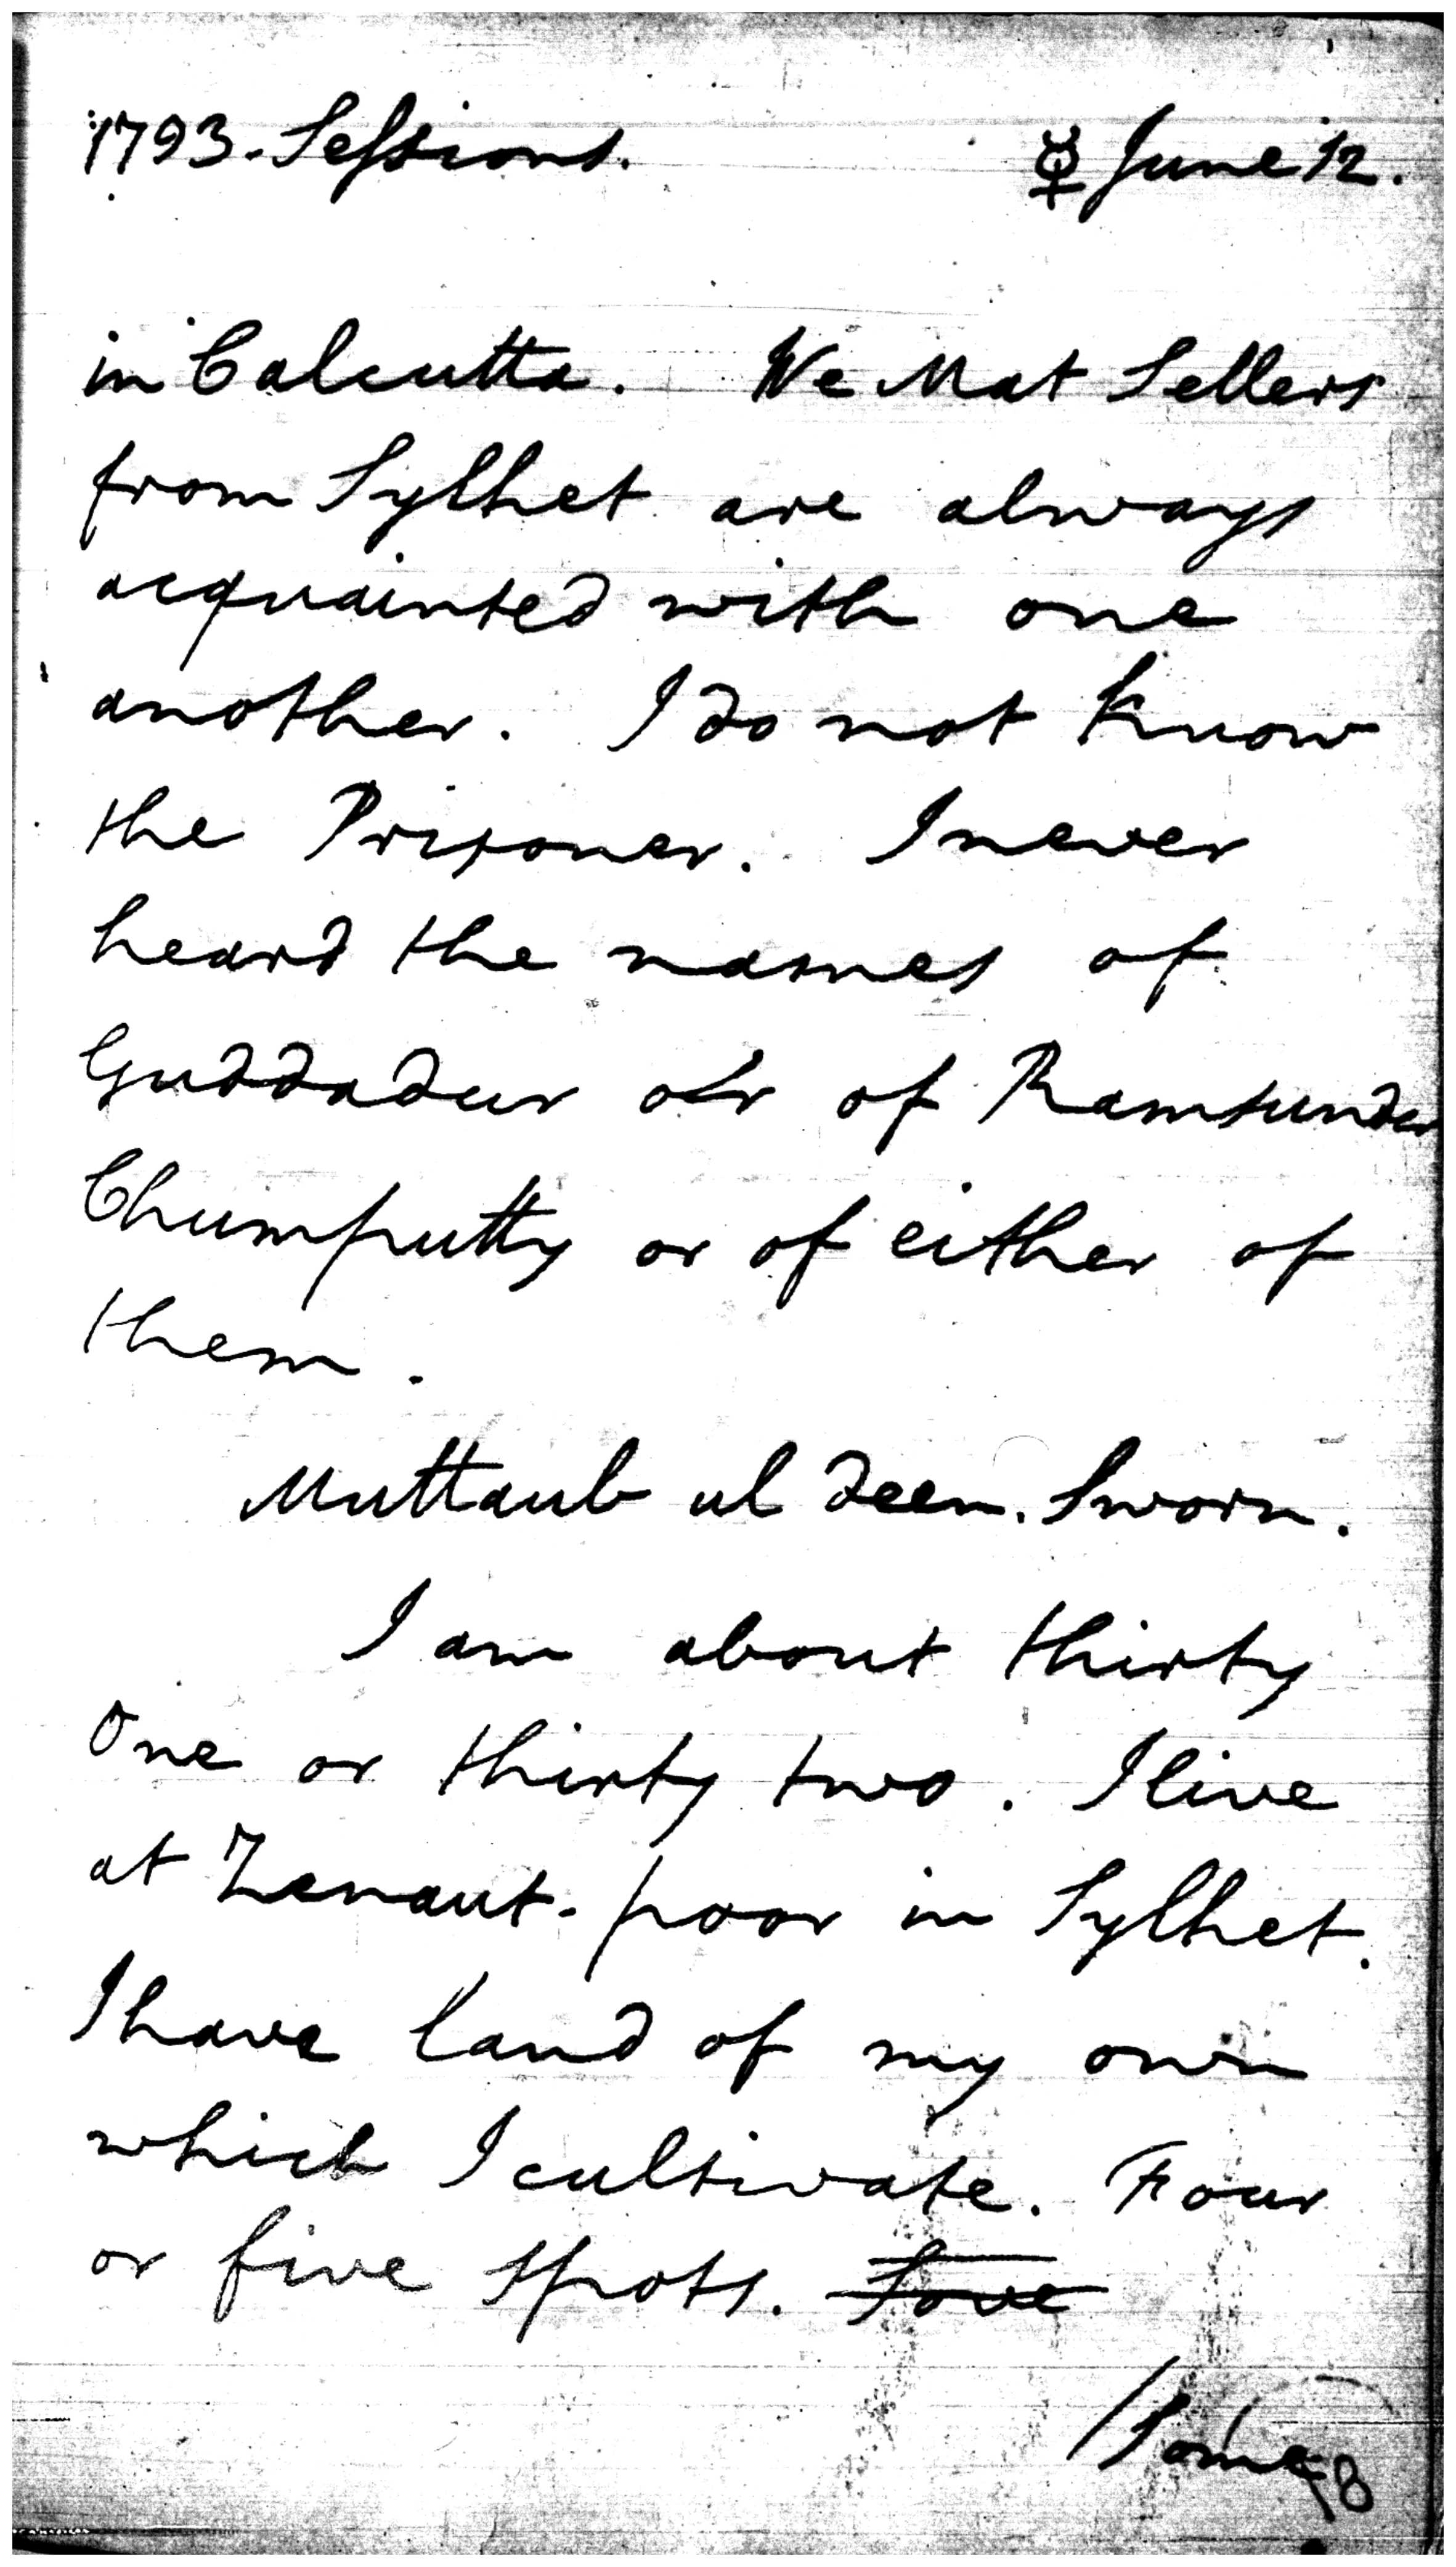 1793. Sessions. ☿ June 12.
in Calcutta. We Mat Sellers
from Sylhet are always
acquainted with one
another. I do not know
the Prisoner. I never
heard the names of
Guddadur or of Ramsunder
Chumputty or of either of
them.
Muttaub ul deen. Sworn.
I am about thirty
One or thirty two. I live
at Zenaut-poor in Sylhet.
I have land of my own
which I cultivate. Four
or five spots. Some
/Some